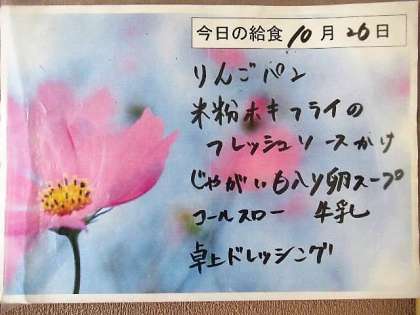 今日の給食 10月26日
りんごパン
米粉ホキフライの
フレッシュソースかけ
じゃがいも入り卵スープ
コールスロー 牛乳
卓上ドレッシング